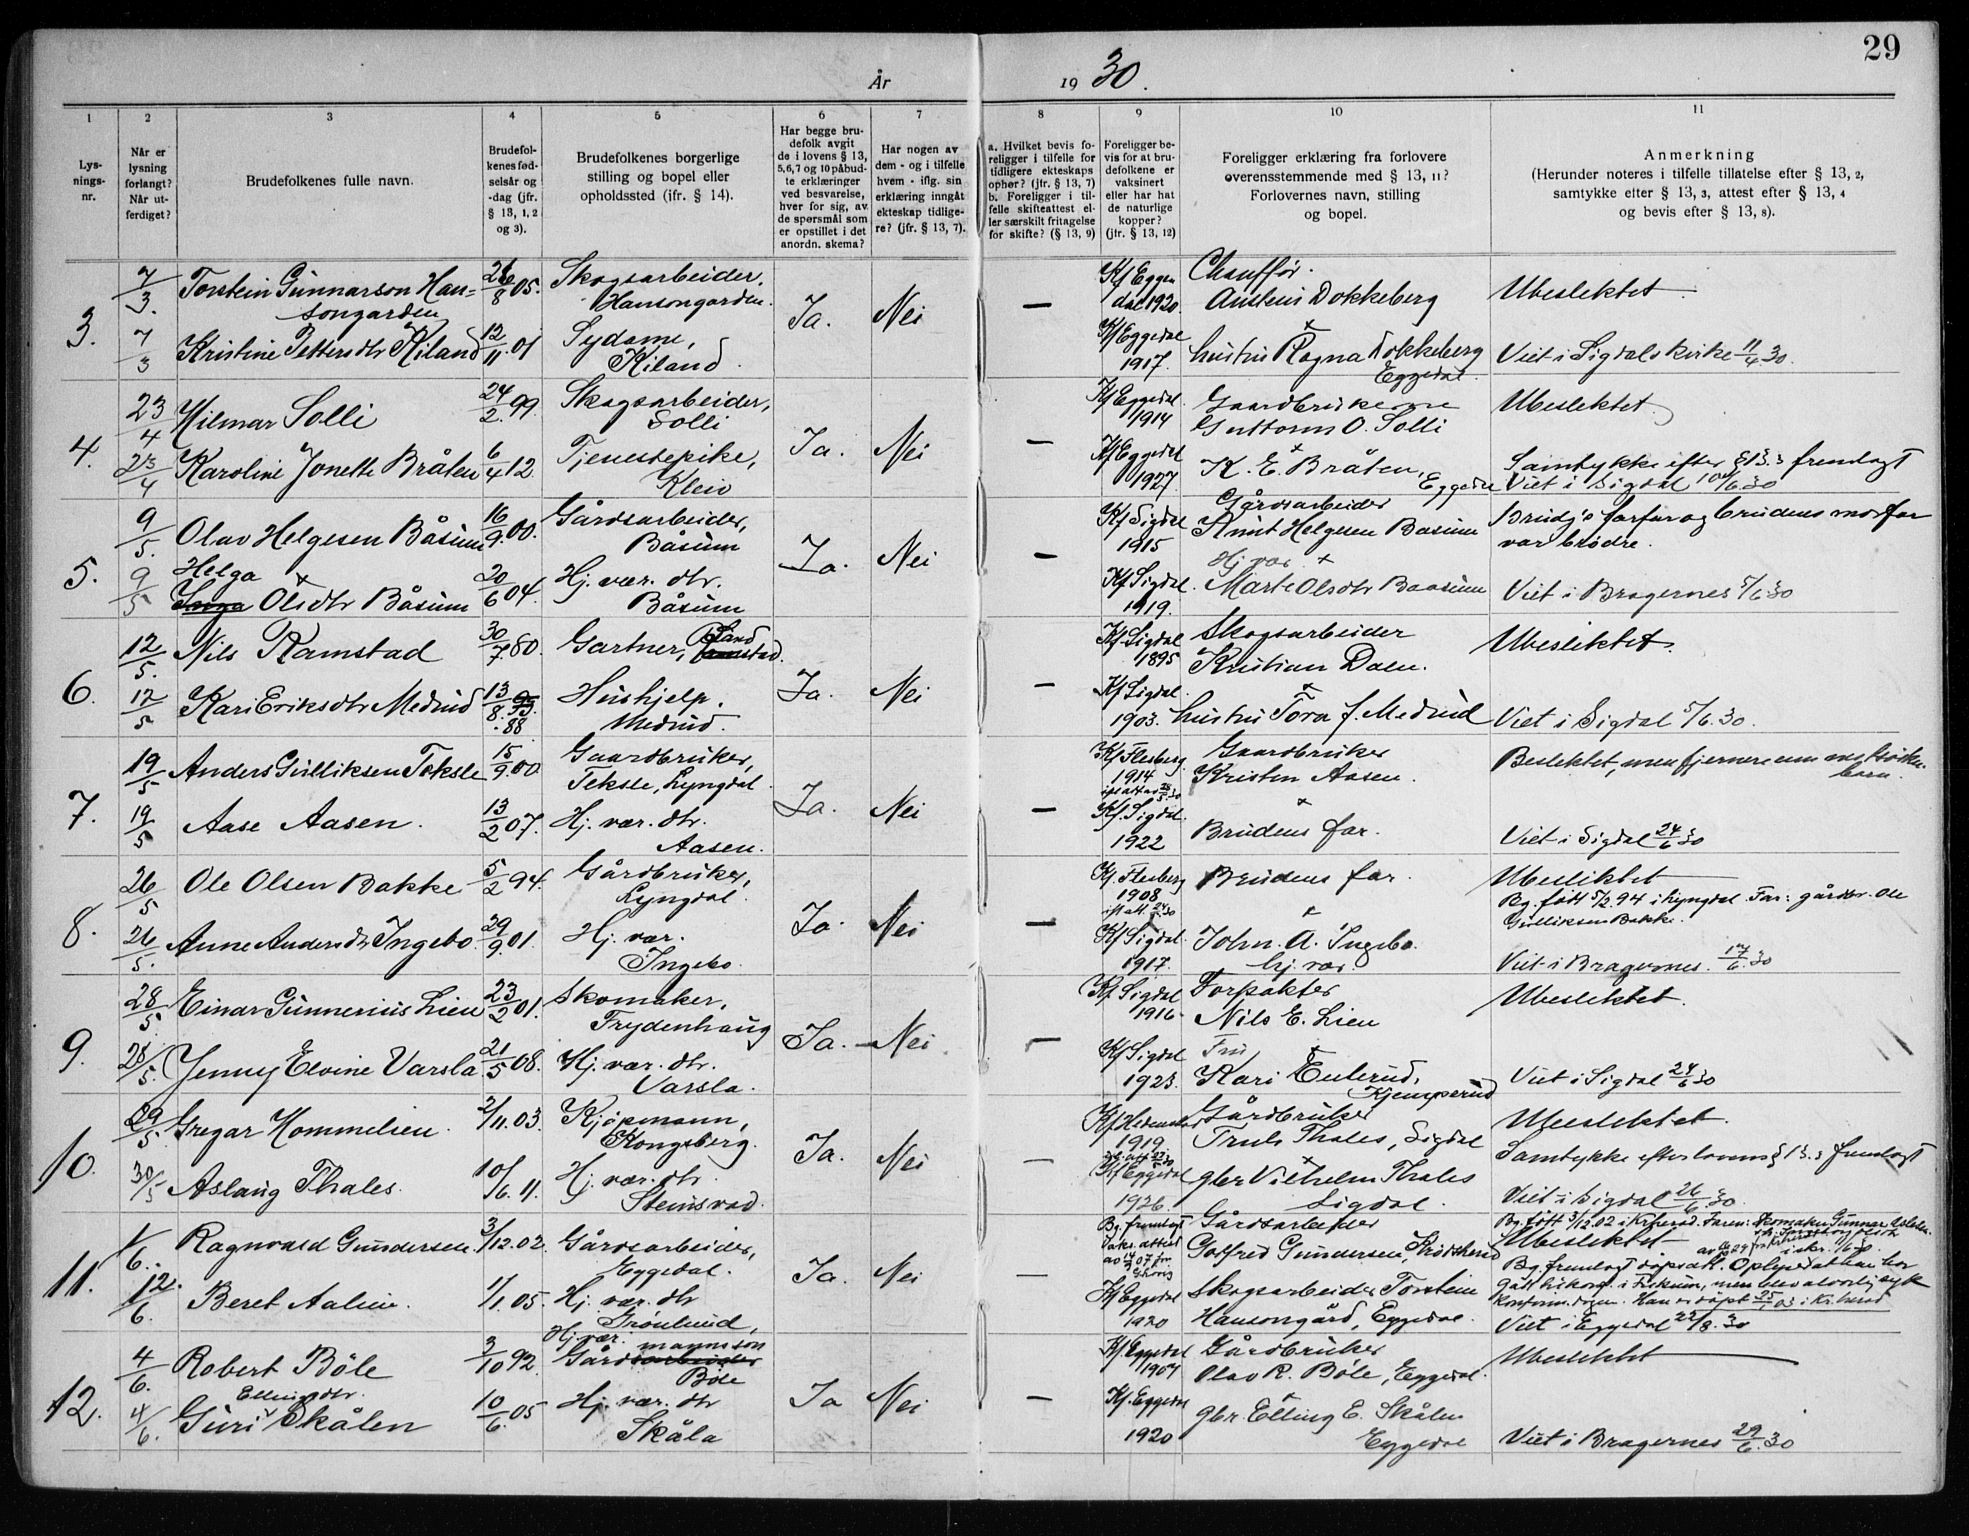 29
År 1930.
1 2 3 4 5 6 7 8 9 10 11
Lys-
nings-
nr.
Når er
lysning
forlangt?
Når ut-
ferdiget?
Brudefolkenes fulle navn.
Brudefol-
kenes fød-
selsår og
-dag (jfr.
§ 13, 1, 2
og 3).
Brudefolkenes borgerlige
stilling og bopel eller
opholdssted (ifr. § 14).
Har begge bru-
defolk avgit
de i lovens § 13,
5,6,7 og 10 påbud-
te erklæringer
ved besvarelse,
hver for sig, av
de spørsmål som
er opstillet i det
anordn. skema?
Har nogen av
dem - og i tilfelle
hvem - iflg. sin
erklæring inngåt
ekteskap tidlige-
re? (jfr. § 13, 7).
a. Hvilket bevis fo-
religger i tilfelle for
tidligere ekteskaps
ophør? (jfr. § 13, 7)
b. Foreligger i til-
felle skifteattest el-
ler særskilt fritagelse
for skifte? (§ 13, 9)
Foreligger be-
vis for at bru-
defolkene er
vaksinert
eller har hat
de naturlige
kopper?
(jfr. § 13, 12)
Foreligger erklæring fra forlovere
overensstemmende med § 13, 11?
Forlovernes navn, stilling
og bopel.
Anmerkning
(Herunder noteres i tilfelle tillatelse efter § 13, 2,
samtykke efter § 13, 3, attest efter § 13, 4
og bevis efter § 13, 8).
3.
7/3. Torstein Gunnarson Han=
songarden
26/8 05. Skogsarbeider,
Hansongarden.
Ja. Nei —
Kf Eggedal 1920. Chauffør.
Austein Dokkeberg
Ubeslektet
7/3 Kristine Pettersdtr Kiland 12/11.01 Sydame,
Kiland.
Kf Eggedal
1917. hustru Ragna Dokkeberg
Eggedal.
Viet i Sigdals kirke 11/4.30.
4.
23/4 Hilmar Solli 24/2.99. Skogsarbeider,
Solli
Ja. Nei —
Kf Eggedal.
1914 Gaardbrukerne
Guttorm O. Solli
Ubeslektet.
23/4 Karoline Jonette Bråten 6/4 12. Tjenestepike,
Kleiv
Kf Eggedal
1927 K. E. Bråten,
Eggedal
Samtykke efter § 13.3 fremlagt
Viet i Sigdal 10/6.30
5.
9/5. Olav Helgesen Båsum 16/9.00. Gårdsarbeider,
Båsum
Ja. Nei —
Kf Sigdal
1915 Gårdsarbeider
Knut Helgesen Basum
Brudg's farfar og brudens morfar
var brødre.
9/5 Helga
Inga Olsdtr Båsum 20/6 04. Hj. vær. dtr.
Båsum
Kf Sigdal.
1919. Hj. vær. +
Marte Olsdtr Baasum
Viet i Bragernes 5/6 30
6.
12/5. Nils Ramstad 30/7 80. Gartner,
Ja. Nei —
Kf Sigdal
1895 Skogsarbeider
Kristian Dalen.
Ubeslektet.
12/5 Kari Eriksdtr Medrud 13/8. 93.
.88 Hushjelp.
Medrud.
Kf Sigdal.
1903. hustru Tora f. Medrud
Viet i Sigdal 5/6.30.
7.
19/5 Anders Gulliksen Teksle 15/9.00. Gaardbruker,
Teksle, Lyngdal
Ja. Nei —
Kf Flesberg
1914 Gaardbruker
Kristen Aasen.
Beslektet, men fjernere enn søsken-
barn.
19/5 Aase Aasen. 13/2 07. Hj. vær. dtr.
Aasen.
Kf. Sigdal.
1922 Brudens far.
Viet i Sigdal 24/6 30
8.
26/5 Ole Olsen Bakke 5/2 94. Gårdbruker,
Lyngdal.
Ja. Nei —
Kf. Flesberg
1908 Brudens far.
Ubeslektet
Bg. født 5/2 94 i Lyngdal. Far: gårdbr. Ole
Gulliksen Bakke.
26/5. Anne Andersdtr Ingebo. 29/9.01. Hj. vær.
Ingebo.
Kf Sigdal.
1917. John. A. Ingebo.
hj. vær.
Viet i Bragernes. 17/6.30
9.
28/5 Einar Gunnerius Lien 23/2 01. Skomaker,
Frydenhaug
Ja. — Nei —
Kf. Sigdal
1916. Forpakter
Nils E. Lien
Ubeslektet.
28/5. Jenny Elvine Varsla 21/5 08. Hj. vær. dtr.
Varsla.
Kf Sigdal
1923. Fru
Kari Enlerud,
Kjemperud
Viet i Sigdal 24/6 30
10.
29/5. Gregar Hommelien. 2/11.03. Kjøpmann,
Kongsberg.
Ja. Nei —
1919. Gårdbruker
Truls Thales, Sigdal
Ubeslektet.
Samtykke efter lovens § 13.3 fremlagt
30/5 Aslaug Thales. 10/6.11. Hj. vær. dtr.
Kf Eggedal
1926. gbr Vilhelm Thales
Sigdal.
Viet i Sigdal 26/6.30.
11.
1/6. Ragnvald Gundersen. 3/12.02. Gårdsarbeider,
Eggedal.
Ja. Nei —
Bg. fremlagt
vaks. attest
Gårdsarbeider
Gotfred Gundersen, Krødsherad
Bg. født 3/12.02 i Krherad. Faren: Skomaker Gunnar
Ubeslektet
Bg. fremlagt dåpsatt.
12/6. Beret Aalien. 1/1.05. Hj. vær. dtr
Grønlund,
Kf Eggedal
1920 Skogsarbeider Torstein
Hansongård, Eggedal.
Han er døpt 25/1 03 i Kr.herad
Viet i Eggedal 22/8.30
12.
4/6. Robert Böle 3/10 92. Hj. vær. mannsøn
Gårdsarbeider
Böle
Ja Nei —
Kf. Eggedal
1907 Gårdbruker
Olav R. Böle, Eggedal.
Ubeslektet
4/6. Ellingsdtr.
Guri Skålen 10/6.05 Hj. vær. dtr
Skåla
Kf. Eggedal
1920 gbr. Elling E. Skålen
Eggedal
Viet i Bragernes 29/6.30